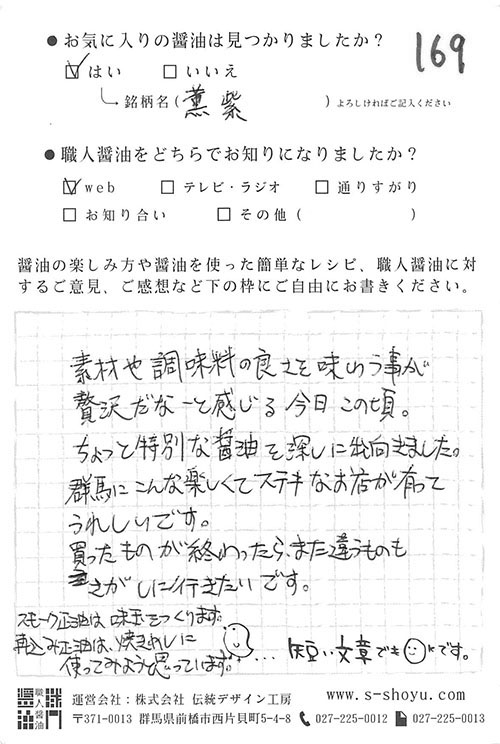 ●お気に入りの醤油は見つかりましたか? 169
☑はい □いいえ
銘柄名(薫紫 )よろしければご記入ください
●職人醤油をどちらでお知りになりましたか?
☑web □テレビ・ラジオ □通りすがり
□お知り合い □その他( )
醤油の楽しみ方や醤油を使った簡単なレシピ、職人醤油に対
するご意見、ご感想など下の枠にご自由にお書きください。
素材や調味料の良さを味わう事が
贅沢だなーと感じる今日この頃。
ちょっと特別な醤油を探しに出向きました。
群馬にこんな楽しくてステキなお店が有って
うれしいです。
買ったものが終わったら、また違うものも
さがしに行きたいです。
スモーク正油は、味玉をつくります。
再込み正油は、焼きめしに
使ってみようと思っています。 ... 短い文章でもokです。
職人醤油
運営会社:株式会社 伝統デザイン工房 www.s-shoyu.com
〒371-0013 群馬県前橋市西片貝町5-4-8 027-225-0012 027-225-0013